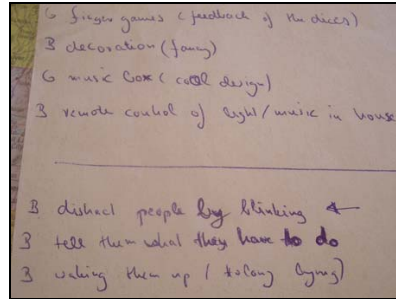 G finger games (feedback of the dices)
B decoration (fancy)
G music box (cool design)
B remote control of light/music in house
B distract people by blinking ←
B tell them what they have to do
B waking them up (